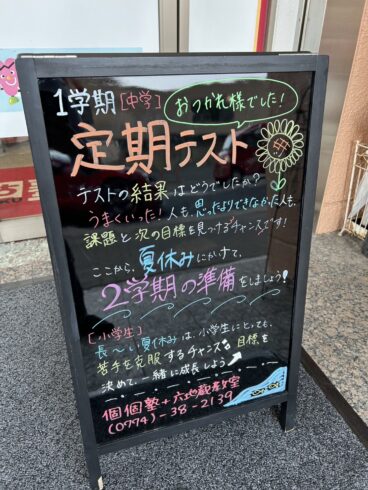 1学期 [中学] おつかれ様でした!
定期テスト
テストの結果はどうでしたか?
うまくいった!人も、思ったよりできなかった人も、
課題と次の目標を見つけるチャンスです!
ここから、夏休みにかけて、
2学期の準備をしましょう!
[小学生]
長〜い夏休みは、小学生にとっても、
苦手を克服するチャンス 目標を
決めて、一緒に成長しよう
個個塾+六地蔵教室
(0774)-38-2139